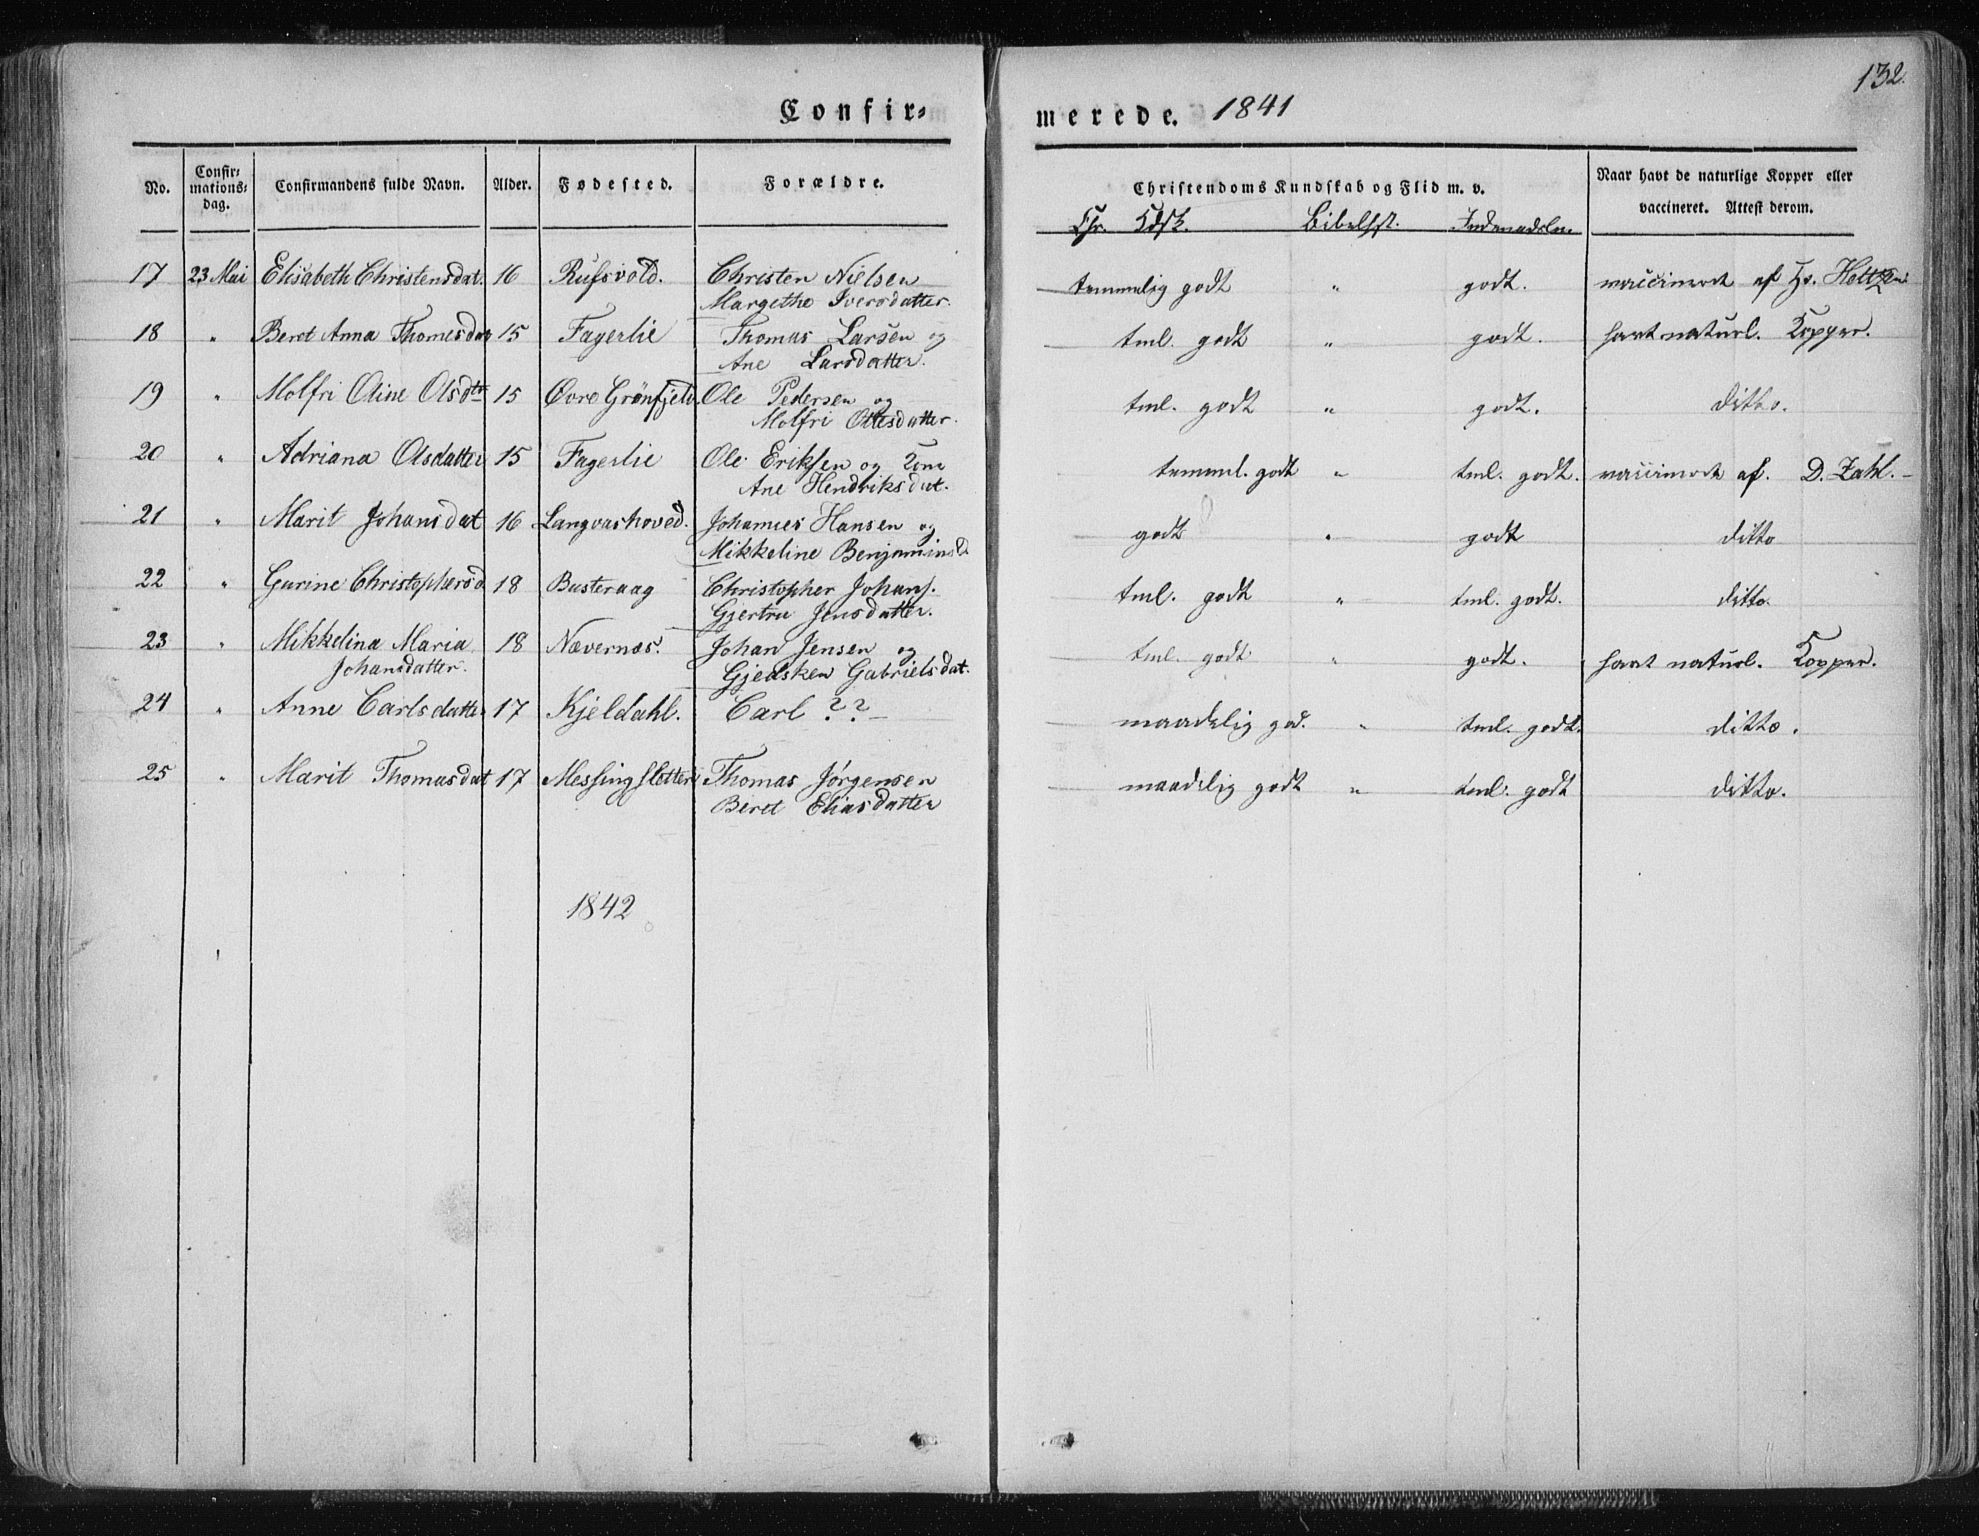 132.
Confir= merede. 1841
No. Confir=mations=dag. Confirmandens fulde Navn. Alder. Fødested. Forældre. Christendoms Kundskab og Flid m. v. Naar havt de naturlige Kopper eller vaccineret. Attest derom.
Chr. Kdsk. Bibelhst. Indenadslæ.
17 23 Mai Elisabeth Christensdat. 16 Rufsvold. Christen Nielsen temmelig godt " godt. vaccineret af Hr.
Margethe Iversdatter.
18 " Beret Anna Thomesdat 15 Fagerlie Thomas Larsen og tml. godt " godt. havt naturl. Kopper.
Ane Larsdatter.
19 " Molfri Oline Olsdtr 15 Øvre Grønfjeld. Ole Pedersen og tml. godt " godt. ditto.
Molfri Ottesdatter.
20 " Adriana Olsdatter 15 Fagerlie Ole Eriksen og Kone temml. godt " tml. godt. vaccineret af. D. Zahl.-
Ane Hendriksdat.
21 " Marit Johansdat 16 Langvashoved. Johannes Hansen og godt " godt ditto
Mikkeline Benjaminsd
22 " Gurine Christophersd 18 Busteraag Christopher Johans. tml. godt " tml. godt. ditto.
Gjertru Jensdatter.
23 " Mikkelina Maria 18 Nævernæs. Johan Jensen og tml. godt " godt. havt naturl. Kopper.
Johansdatter. Gjedsken Gabrielsdat.
24 " Anne Carlsdatter 17 Kjeldahl. Carl ?? - maadelig god. " tml. godt. ditto.
25 " Marit Thomasdat 17 Messingsletten Thomas Jørgensen maadelig godt " tml. godt ditto.
Beret Eliasdatter
1842